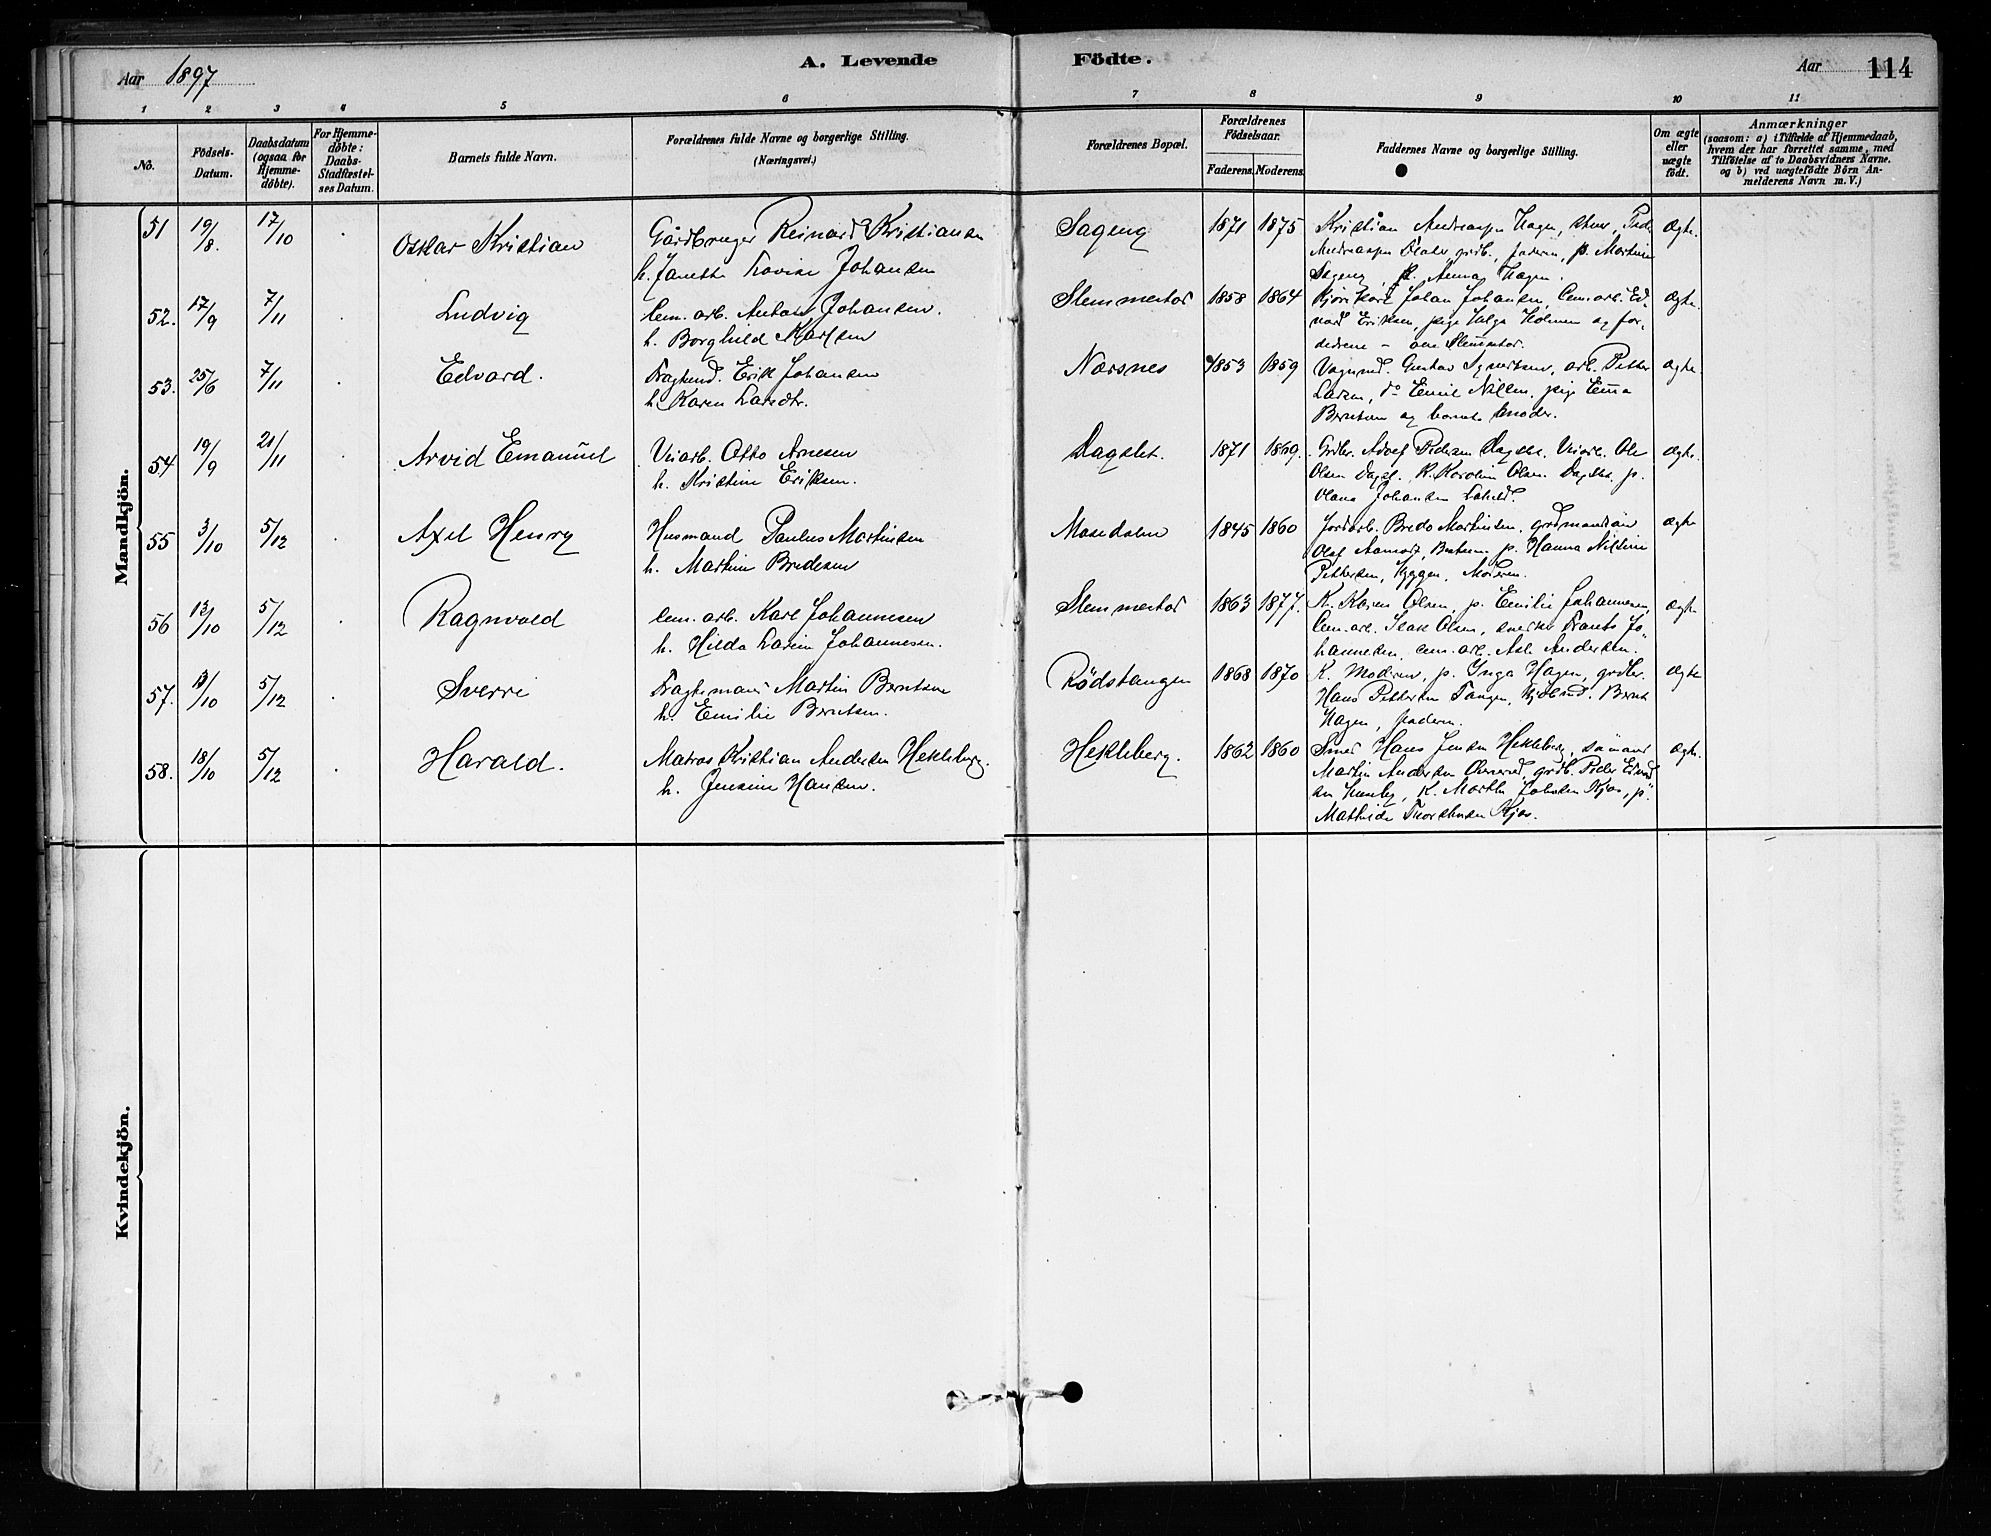 Aar 1897
A. Levende Födte.
Aar 114
1 2 3 4 5 6 7 8 9 10 11
No.
Födsels-Datum.
Daabsdatum (ogsaa for Hjemme-döbte).
For Hjemme-döbte: Daabs-Stadfæstel-ses Datum.
Barnets fulde Navn.
Forældrenes fulde Navne og borgerlige Stilling. (Næringsvei.)
Forældrenes Bopæl.
Forældrenes Födselsaar.
Faderens. Moderens.
Faddernes Navne og borgerlige Stilling.
Om ægte eller uægte födt.
Anmærkninger
(saasom: a) i Tilfælde af Hjemmedaab,
hvem der har forrettet samme, med
Tilföielse af to Daabsvidners Navne.
og b) ved uægtefödte Börn An-
melderens Navn m. V.)
Mandkjön.
51 19/8. 17/10 Oskar Kristian
Gårdbruger Reinard Kristiansen
h. Janette Lovise Johansen
Sageng 1871 1875
Kristian Andreassen Hagen,
Andreassen grdb., faderen, p. Martine
Sageng, p. Anna Hagen.
Ægte.
52. 17/9 7/11 Ludvig
Cem. arb. Anton Johansen.
h. Borghild Karlsen
Slemmestad 1858 1864
Kjörekarl Johan Johansen, Cem. arb. Ed-
vard Eriksen, pige Helga Holmen og for-
ældrene – Slemmestad.
Ægte.
53. 25/6 7/11 Edvard.
Fragtmd. Erik Johansen
h. Karen Larsdtr.
Nærsnes 1853 1859
Gustav Syvertsen, arb. Petter
Larsen, do Emil Nilsen, pige Emma
Berntsen og barnets moder.
Ægte
54 19/9 21/11 Arvid Emanuel
Veiarb. Otto Arnesen
h. Kristine Eriksen.
Dagslet. 1871 1869.
Grdbr. Adolf Pedersen Dagslet. Veiarb. Ole
Olsen Dagsl. K. Karoline Olsen Dagslet, p.
Johansen
Ægte.
55 3/10 5/12 Axel Henry
Husmand Paulus Martinsen
h. Martine Bredesen
Mosedalen 1845 1860
Jordarb. Brede Martinsen, grdmandsön
Olaf Aamodt, p. Hanna Nilsine
Pettersen, Hyggen, Moderen.
Ægte
56 13/10 5/12 Ragnvald
Cem. arb. Karl Johannesen
h. Hilda Larine Johannesen.
Slemmestad 1863 1877.
K. Karen Olsen, p. Emilie Johannesen,
Cem. arb. Isak Olsen, Frants Jo-
hannesen, cem. arb. Andersen.
Ægte
57. 13/10 5/12 Sverre
Fragtemand Martin Berntsen
h. Emilie Berntsen.
Rödstangen 1868 1870
K. Moderen, p. Inga Hagen, grdbr.
Hans Pettersen Tangen, Bernt
Hagen, faderen.
Ægte
58. 18/10 5/12 Harald.
Matros Kristian Andersen Hekleberg.
h. Jensine Hansen.
Hekleberg. 1862 1860
Smed Hans Jensen Hekleberg, sömand
Martin Andersen grdb. Peder
K. Marthe Johnsen Kjos, p.
Mathilde Thorstensen Kjos.
Ægte.
Kvindekjön.